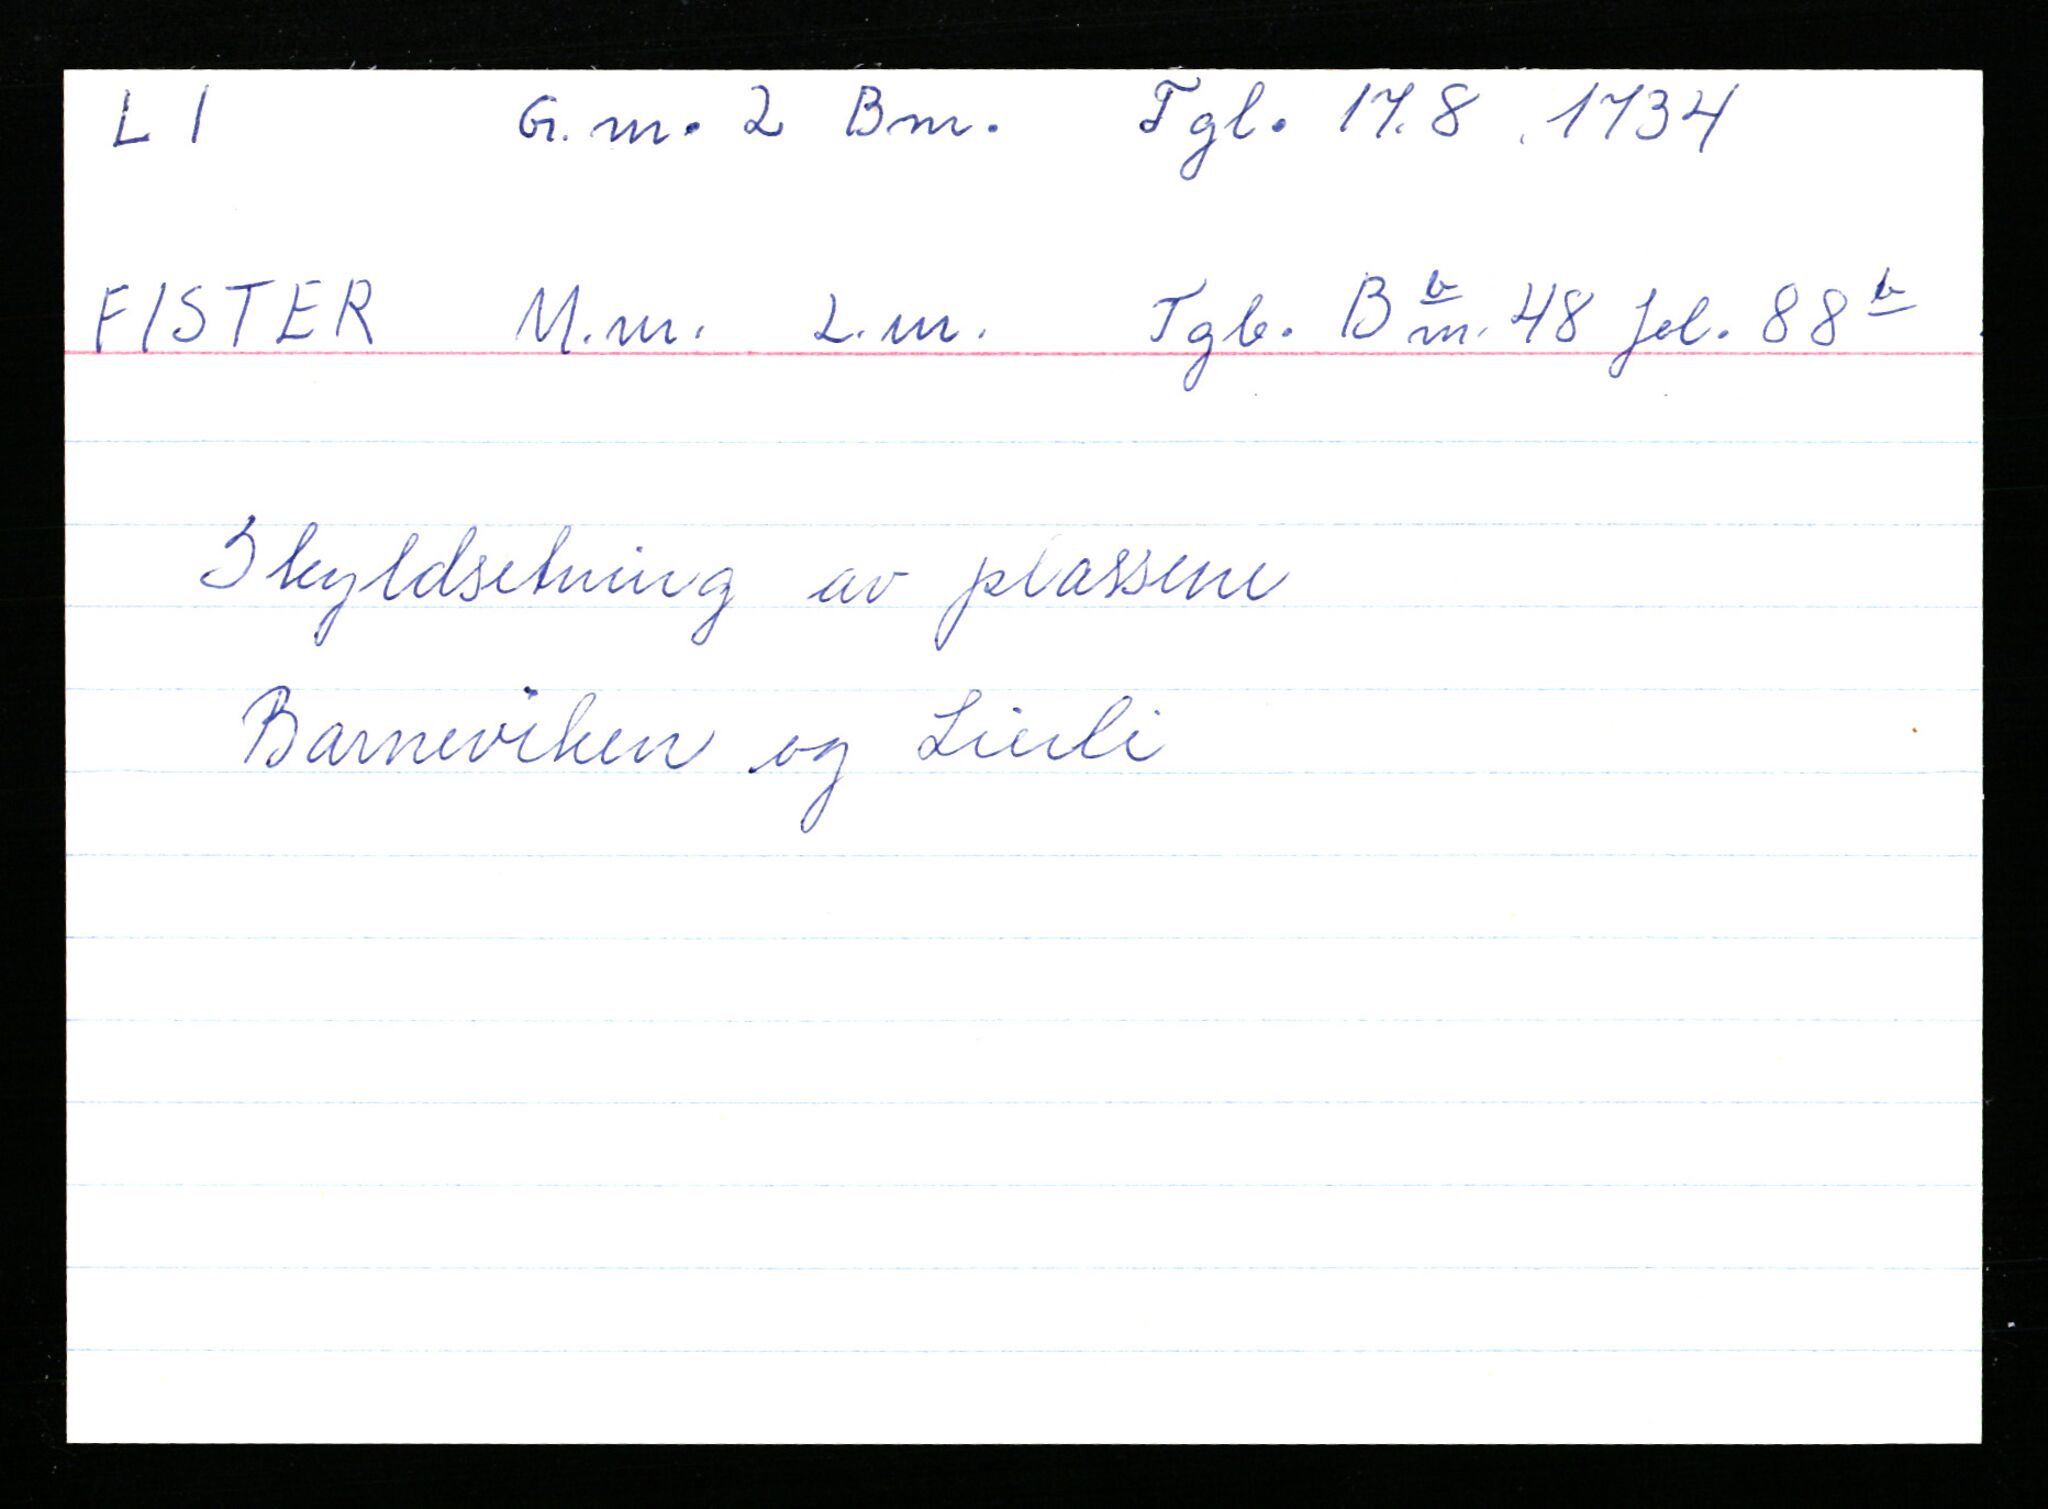 LI G.nr. 2 Bnr. Tgl. 17.8.1734
FISTER M.nr. L.nr. Tgb. B b nr. 48 fol. 88 b
Skyldsetning av plassene
Barneviken og Lierli